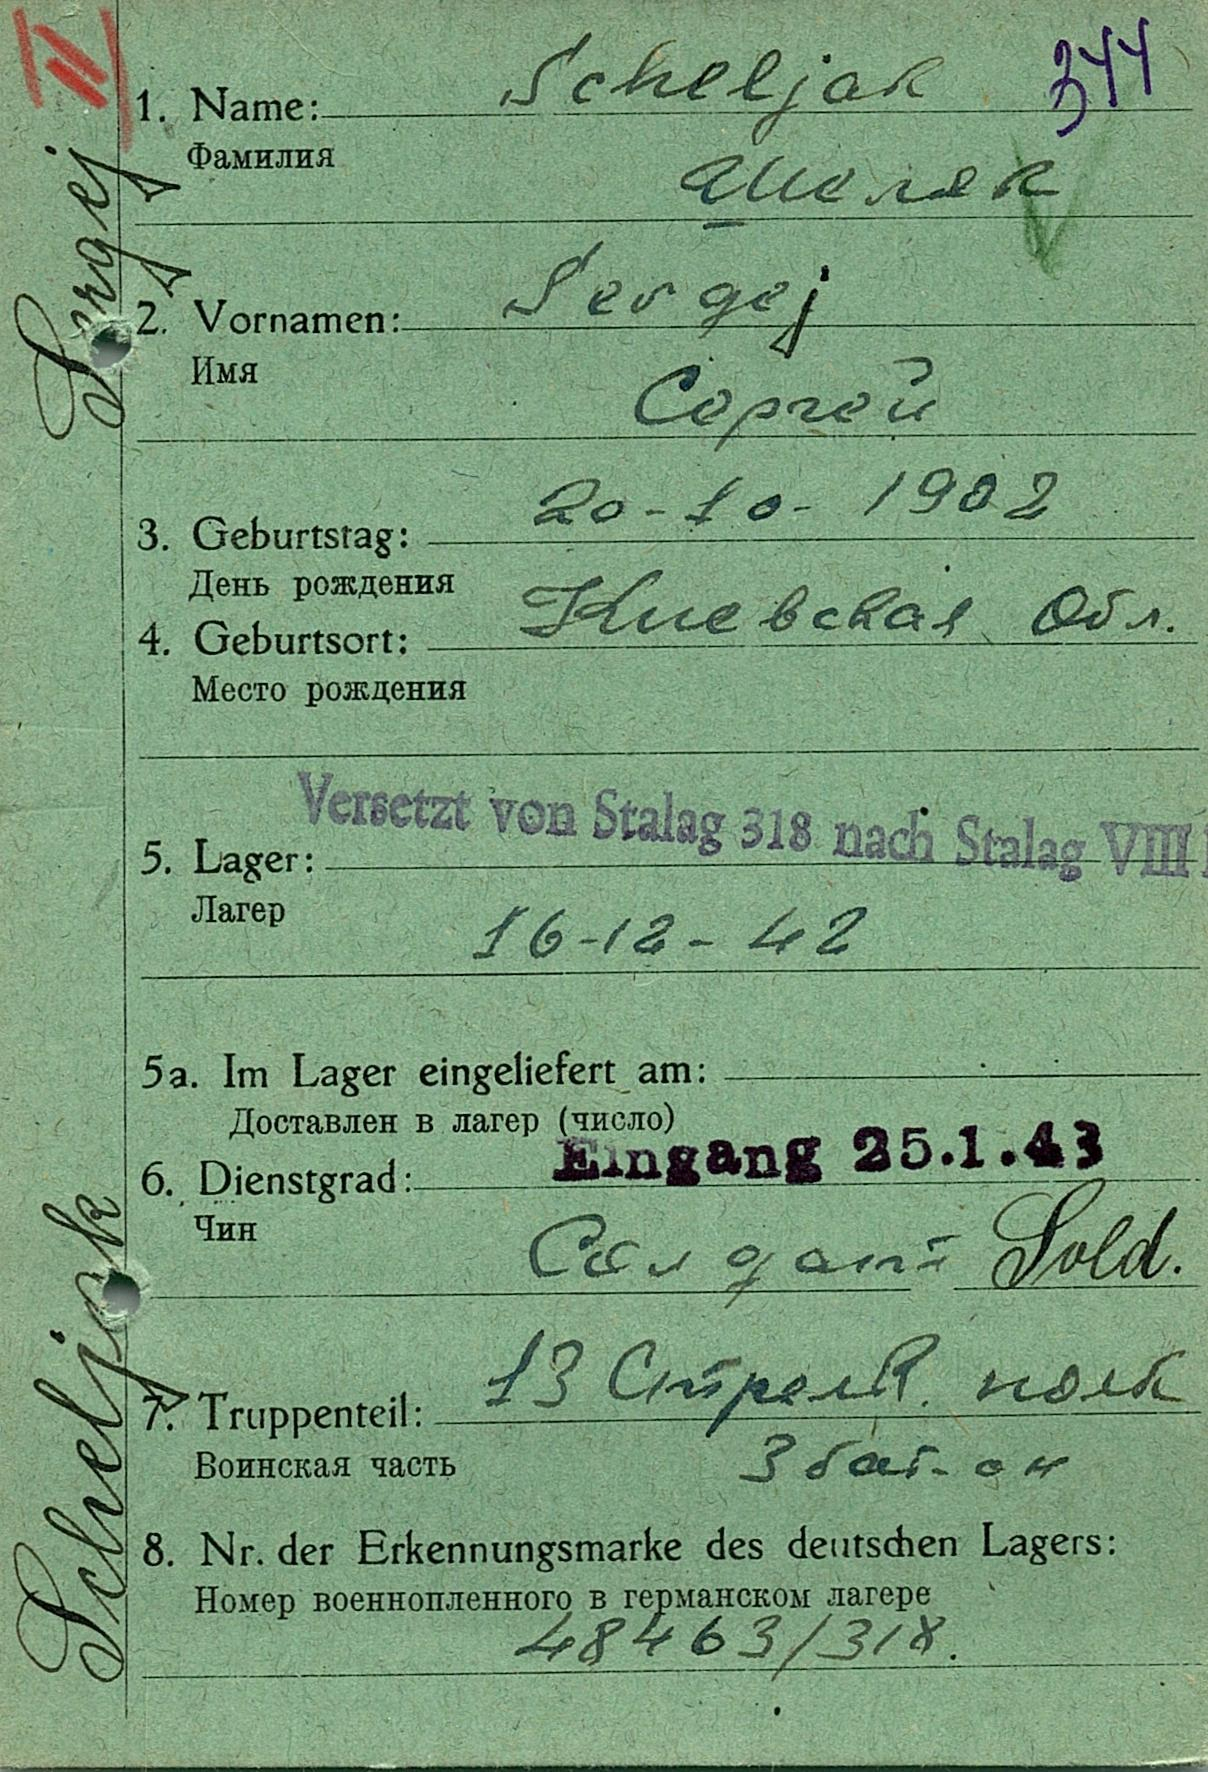 IV
344
1. Name: Scheljak
Фамилия
Шеляк
2. Vornamen: Sergej
Имя
Сергей
3. Geburtstag: 20-10-1902
День рождения
4. Geburtsort: Киевская Обл.
Место рождения
Versetzt von Stalag 318 nach Stalag VIII
5. Lager:
Лагер
16-12-42
5a. Im Lager eingeliefert am:
Доставлен в лагер (число)
Eingang 25.1.43
6. Dienstgrad:
Чин
Солдат Sold.
7. Truppenteil: 13 Стрелк. полк
Воинская часть
3 бат-он
8. Nr. der Erkennungsmarke des deutschen Lagers:
Номер военнопленного в германском лагере
48463/318.
Scheljak Sergej